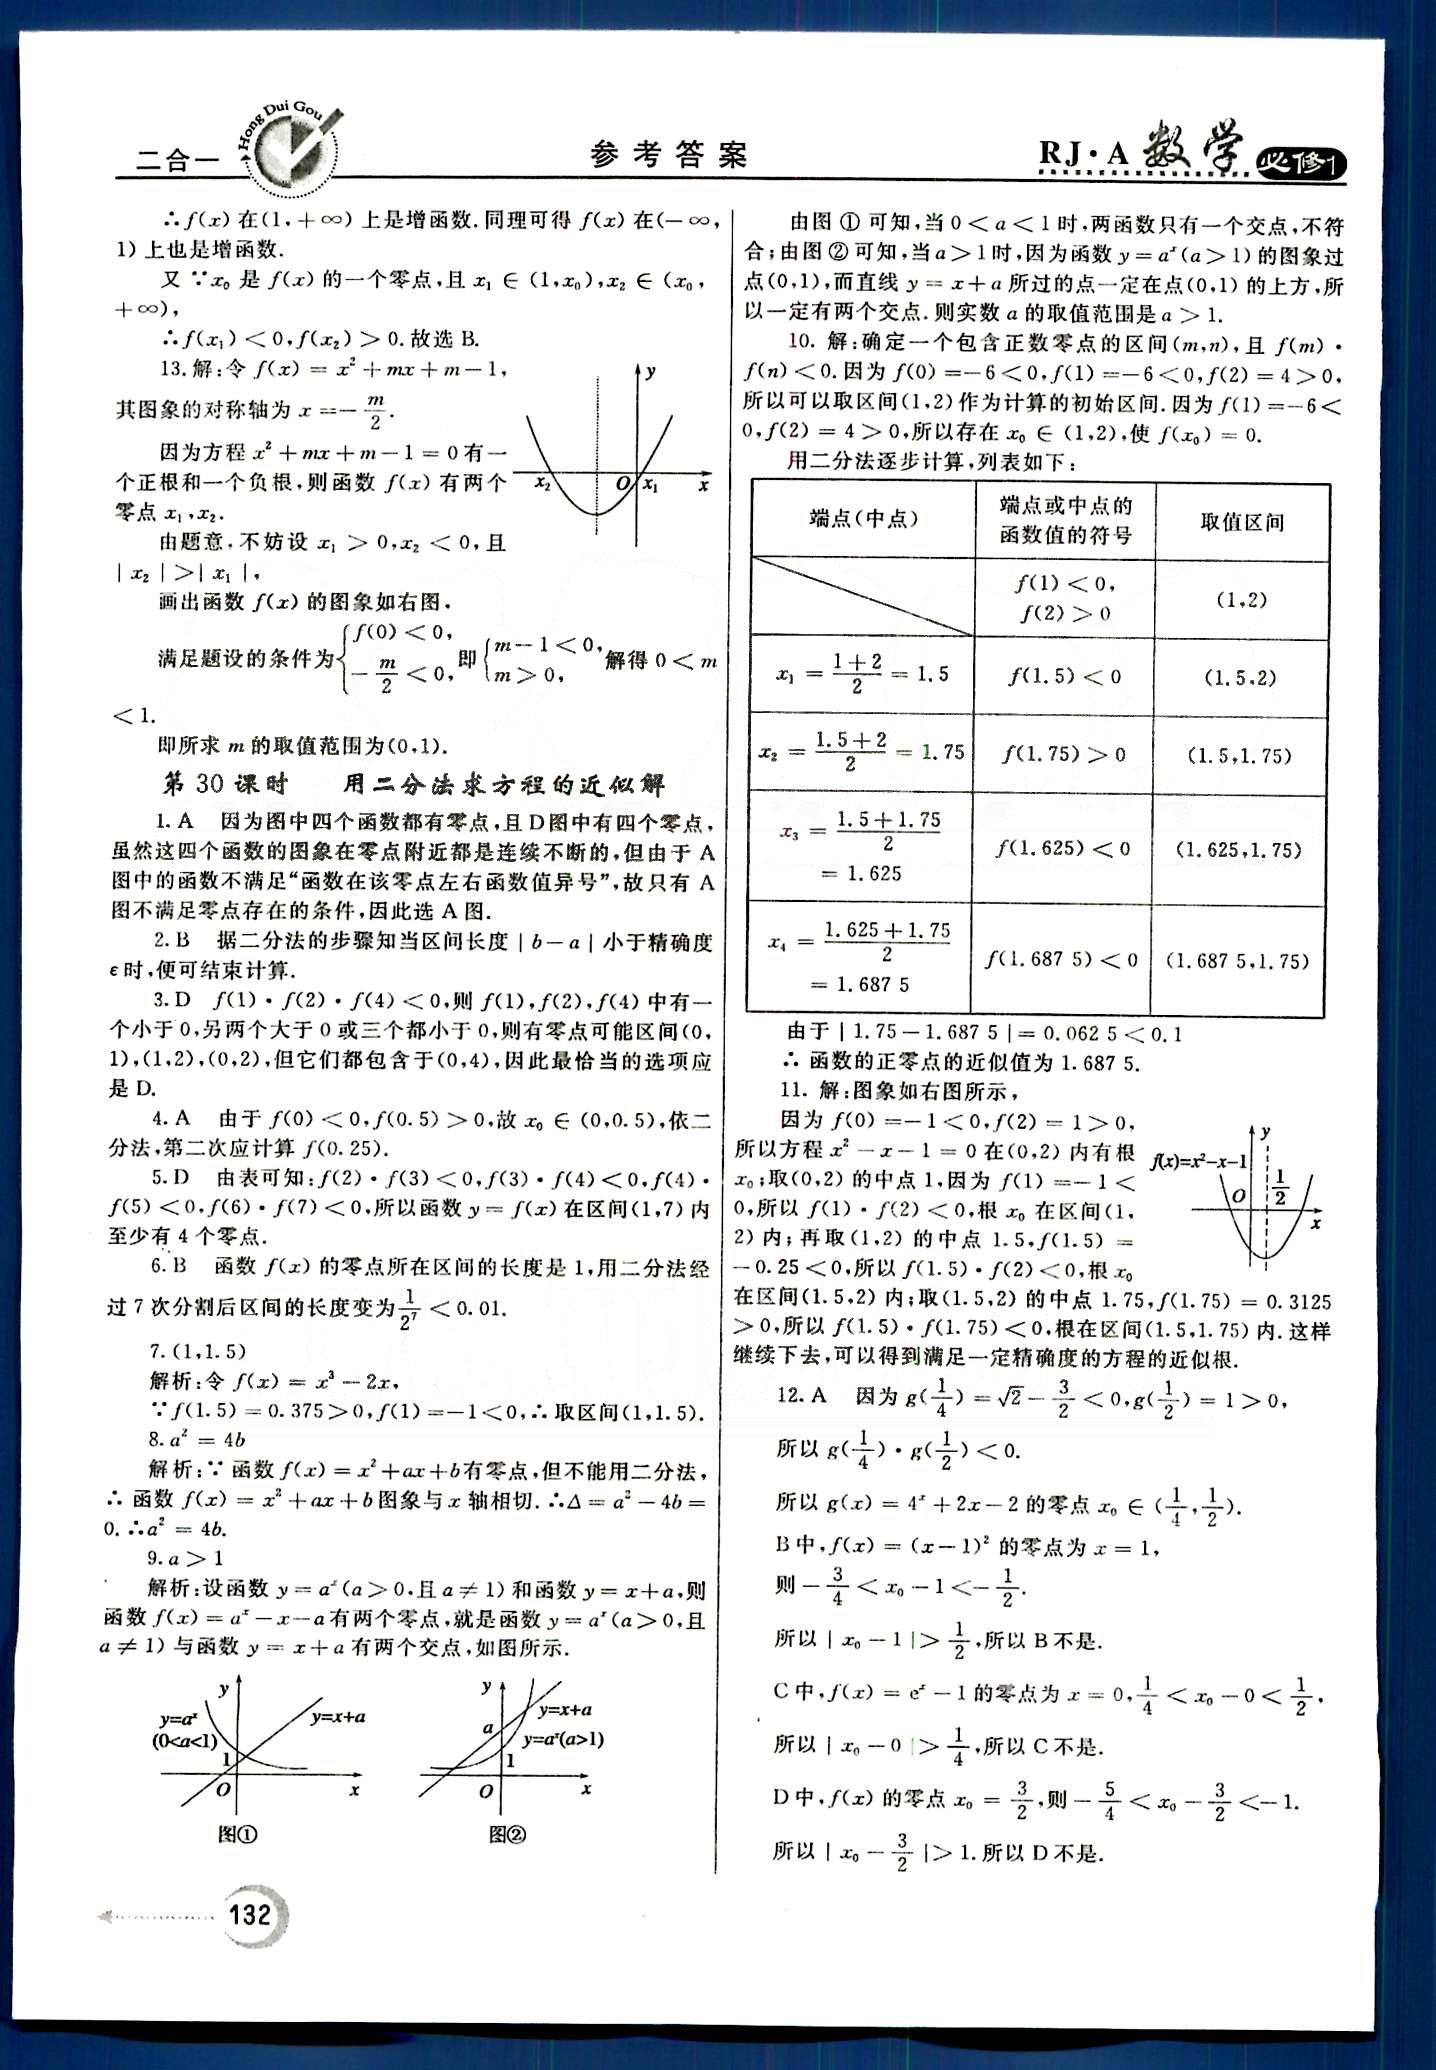 二合一
Hong Dui Gou
参考答案
RJ·A 数学 必修1
∴f(x)在(1,+∞)上是增函数.同理可得 f(x)在(-∞,
1)上也是增函数.
又∵x₀ 是 f(x) 的一个零点,且 x₁∈(1,x₀),x₂∈(x₀,
+∞),
∴f(x₁)<0,f(x₂)>0.故选 B.
13.解:令 f(x)=x²+mx+m-1,
其图象的对称轴为 x=-m/2.
因为方程 x²+mx+m-1=0有一
个正根和一个负根,则函数 f(x) 有两个
零点 x₁,x₂.
由题意,不妨设 x₁>0,x₂<0,且
|x₂|>|x₁|,
画出函数 f(x) 的图象如右图.
y
x₂ O x₁ x
满足题设的条件为{f(0)<0, -m/2<0, 即{m-1<0, m>0, 解得 0<m
<1.
即所求 m 的取值范围为(0,1).
第30课时 用二分法求方程的近似解
1.A 因为图中四个函数都有零点,且D图中有四个零点,
虽然这四个函数的图象在零点附近都是连续不断的,但由于 A
图中的函数不满足“函数在该零点左右函数值异号”,故只有 A
图不满足零点存在的条件,因此选 A 图.
2.B 据二分法的步骤知当区间长度|b-a|小于精确度
ε时,便可结束计算.
3.D f(1)·f(2)·f(4)<0,则 f(1),f(2),f(4) 中有一
个小于0,另两个大于0或三个都小于0,则有零点可能区间(0,
1),(1,2),(0,2),但它们都包含于(0,4),因此最恰当的选项应
是 D.
4.A 由于 f(0)<0,f(0.5)>0,故 x₀∈(0,0.5),依二
分法,第二次应计算 f(0.25).
5.D 由表可知:f(2)·f(3)<0,f(3)·f(4)<0,f(4)·
f(5)<0,f(6)·f(7)<0,所以函数 y=f(x)在区间(1,7) 内
至少有 4 个零点.
6.B 函数 f(x) 的零点所在区间的长度是 1,用二分法经
过 7 次分割后区间的长度变为1/2⁷<0.01.
7.(1,1.5)
解析:令 f(x)=x³-2x,
∵f(1.5)=0.375>0,f(1)=-1<0,∴取区间(1,1.5).
8.a²=4b
解析:∵函数 f(x)=x²+ax+b有零点,但不能用二分法,
∴函数 f(x)=x²+ax+b图象与 x 轴相切.∴Δ=a²-4b=
0.∴a²=4b.
9.a>1
解析:设函数 y=aˣ(a>0,且 a≠1)和函数 y=x+a,则
函数 f(x)=aˣ-x-a有两个零点,就是函数 y=aˣ(a>0,且
a≠1)与函数 y=x+a 有两个交点,如图所示.
y
y=aˣ
(0<a<1)
y=x+a
1
O x
图①
y
y=x+a
a
y=aˣ(a>1)
1
O x
图②
132
由图①可知,当0<a<1时,两函数只有一个交点,不符
合;由图②可知,当a>1时,因为函数 y=aˣ(a>1)的图象过
点(0,1),而直线 y=x+a 所过的点一定在点(0,1)的上方,所
以一定有两个交点.则实数 a 的取值范围是 a>1.
10. 解:确定一个包含正数零点的区间(m,n),且 f(m)·
f(n)<0.因为 f(0)=-6<0,f(1)=-6<0,f(2)=4>0,
所以可以取区间(1,2)作为计算的初始区间.因为 f(1)=-6<
0,f(2)=4>0,所以存在 x₀∈(1,2),使 f(x₀)=0.
用二分法逐步计算,列表如下:
端点(中点) 端点或中点的函数值的符号 取值区间
f(1)<0, f(2)>0 (1,2)
x₁=(1+2)/2=1.5 f(1.5)<0 (1.5,2)
x₂=(1.5+2)/2=1.75 f(1.75)>0 (1.5,1.75)
x₃=(1.5+1.75)/2=1.625 f(1.625)<0 (1.625,1.75)
x₄=(1.625+1.75)/2=1.687 5 f(1.687 5)<0 (1.687 5,1.75)
由于|1.75-1.687 5|=0.062 5<0.1
∴函数的正零点的近似值为 1.687 5.
11. 解:图象如右图所示,
因为 f(0)=-1<0,f(2)=1>0,
所以方程 x²-x-1=0在(0,2)内有根
x₀;取(0,2)的中点1,因为 f(1)=-1<
0,所以 f(1)·f(2)<0,根 x₀ 在区间(1,
2)内;再取(1,2)的中点1.5,f(1.5)=
-0.25<0,所以 f(1.5)·f(2)<0,根 x₀
y
f(x)=x²-x-1
1/2
O x
在区间(1.5,2)内;取(1.5,2)的中点1.75,f(1.75)=0.3125
>0,所以 f(1.5)·f(1.75)<0,根在区间(1.5,1.75)内.这样
继续下去,可以得到满足一定精确度的方程的近似根.
12.A 因为 g(1/4)=√2-3/2<0,g(1/2)=1>0,
所以 g(1/4)·g(1/2)<0.
所以 g(x)=4ˣ+2x-2的零点 x₀∈(1/4,1/2).
B中,f(x)=(x-1)²的零点为 x=1,
则-3/4<x₀-1<-1/2.
所以|x₀-1|>1/2,所以 B不是.
C中,f(x)=eˣ-1的零点为 x=0,1/4<x₀-0<1/2,
所以|x₀-0|>1/4,所以 C不是.
D中,f(x)的零点 x₀=3/2,则-5/4<x₀-3/2<-1.
所以|x₀-3/2|>1.所以 D不是.